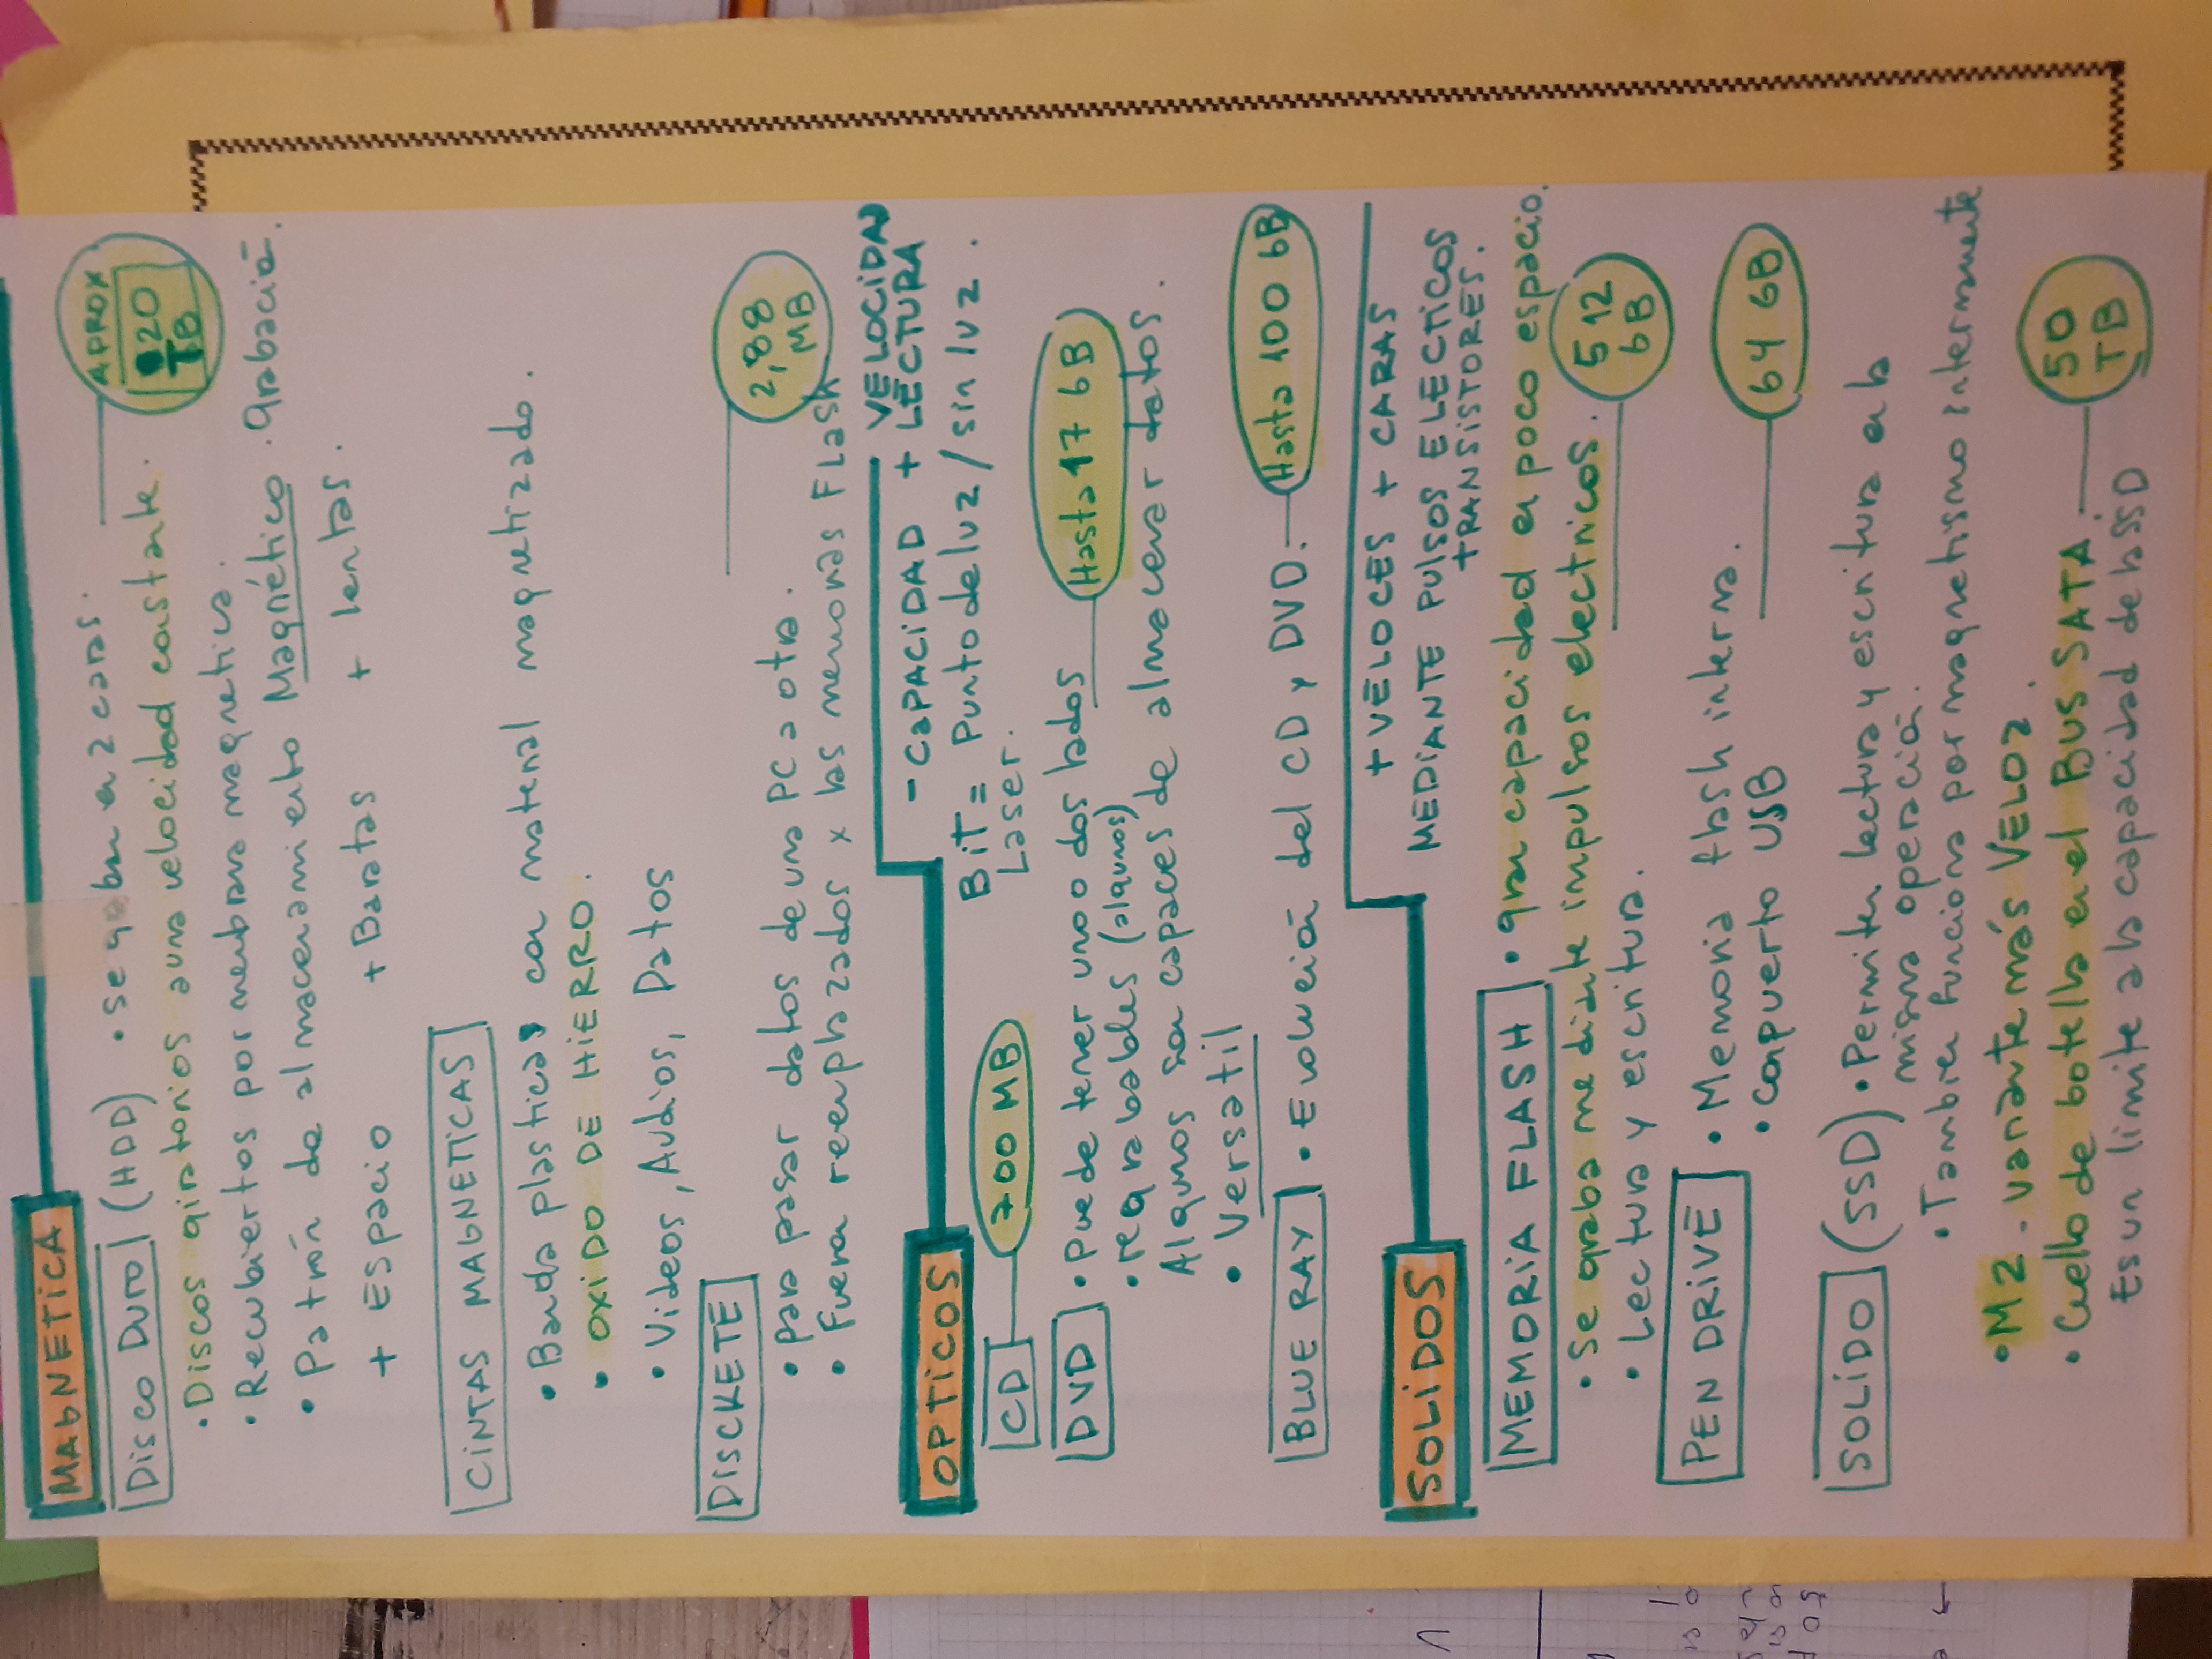 MAGNETiCA
Disco Duro (HDD) • se graban a 2 caras.
APROX
20
TB
• Discos giratorios a una velocidad constante.
• Recubiertos por menbrana magnetica.
• Patrón de almacenamiento Magnético. Grabación.
+ Espacio + Baratas + lentas.
CiNTAS MAGNETiCAS
• Banda plasticas con material magnetizado.
• OXiDO DE HiERRO.
• Videos, Audios, Datos
DISCKETE
2,88
MB
• para pasar datos de una PC a otra.
• Fueron reenplazados x las memorias Flash
OPTiCOS
VELOCiDAD
- CAPACiDAD + LECTURA
BiT = Punto de luz / sin luz.
Laser.
CD 700 MB
DVD • Puede tener uno o dos lados Hasta 17 GB
• regrabables (algunos)
Algunos son capaces de almacenar datos.
• Versatil
BLUE RAY • Evolución del CD y DVD. Hasta 100 GB
SOLiDOS
+ VELOCES + CARAS
MEDiANTE PULSOS ELECTiCOS
TRANSiSTORES.
MEMORiA FLASH • gran capacidad en poco espacio.
• Se graba mediante impulsos electricos.
• Lectura y escritura.
512
GB
PEN DRiVE • Memoria flash interna.
• con puerto USB 64 GB
SOLiDO (SSD) • Permiten lectura y escritura en la
misma operación.
• Tambien funciona por magnetismo internamente
• M2 - variante más VELOZ.
• Cuello de botella en el BUS SATA.
50
TB
Es un limite a la capacidad de la SSD